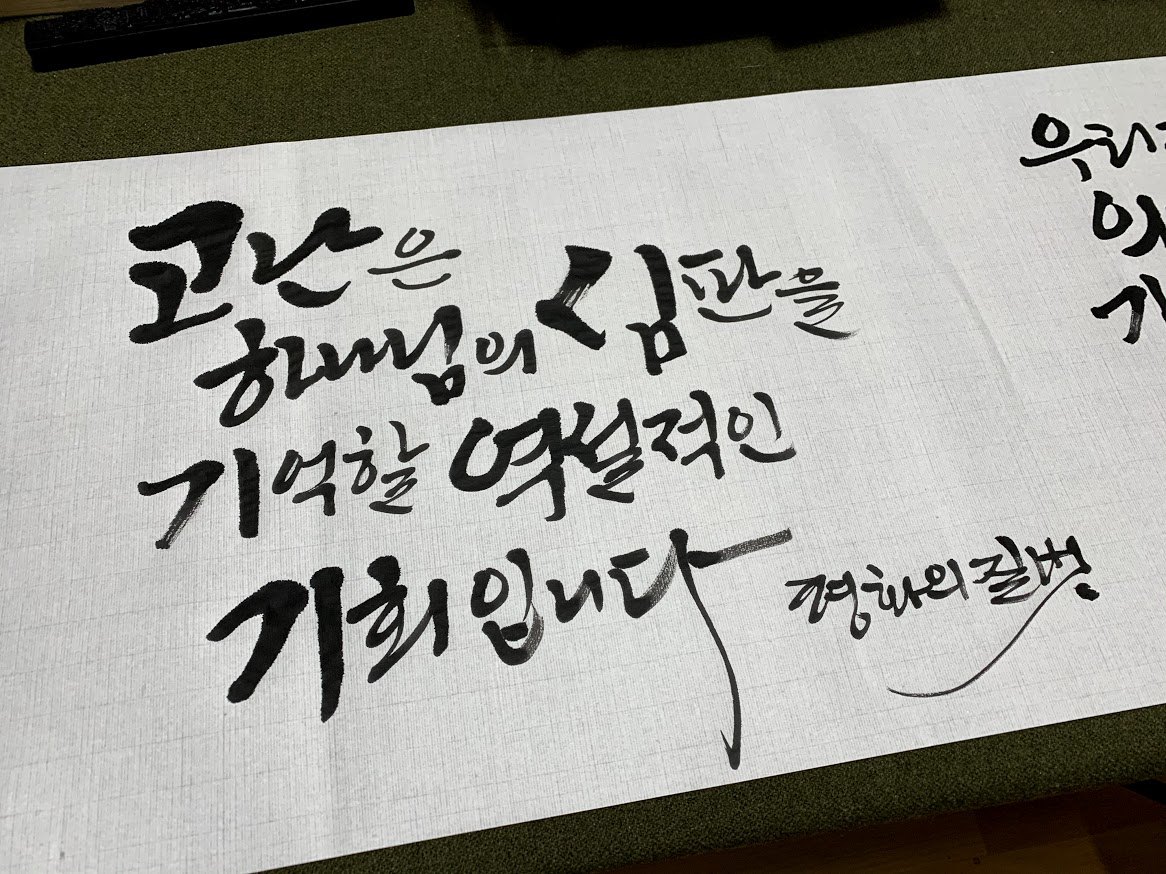 고난은
하나님의 심판을
기억할 역설적인
기회입니다
평화의 질병
우리